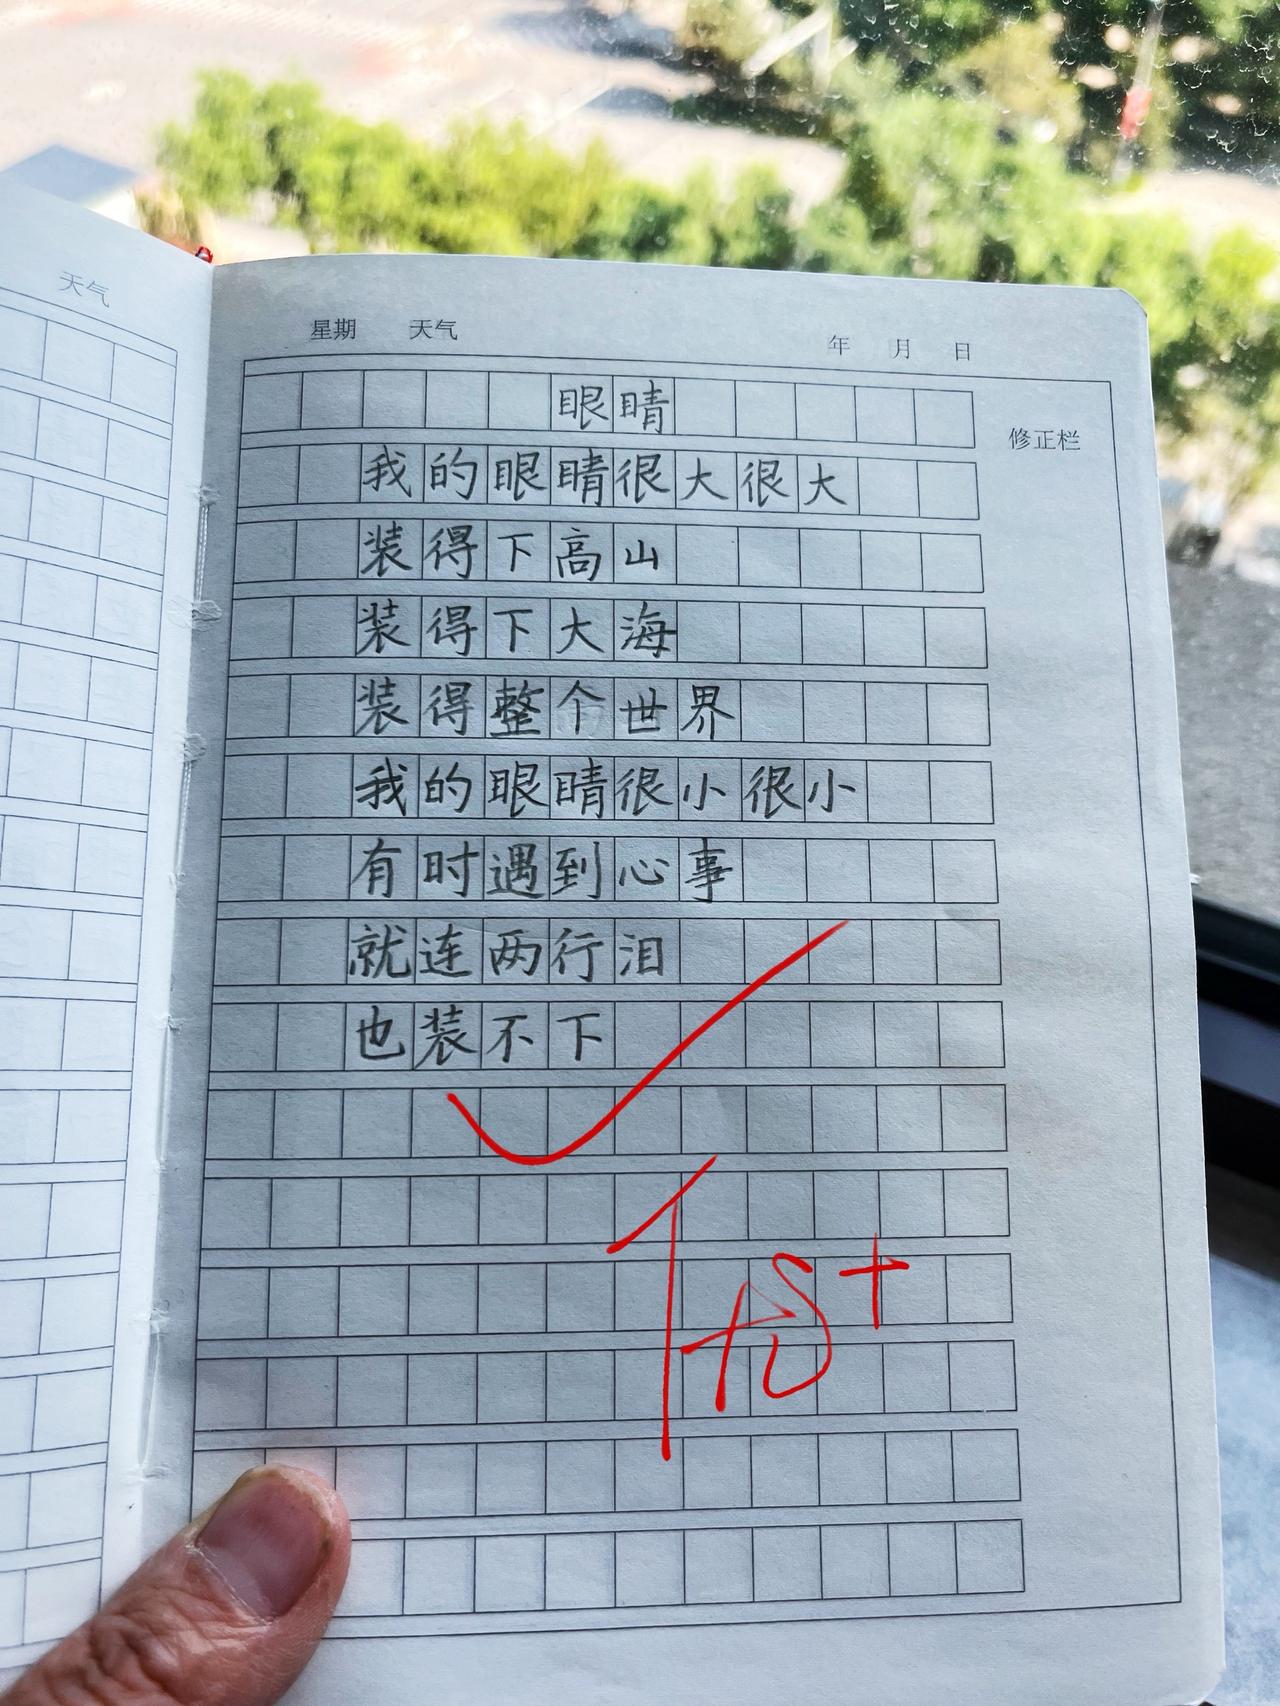 天气
星期 天气 年 月 日
眼睛
修正栏
我的眼睛很大很大
装得下高山
装得下大海
装得整个世界
我的眼睛很小很小
有时遇到心事
就连两行泪
也装不下
优+